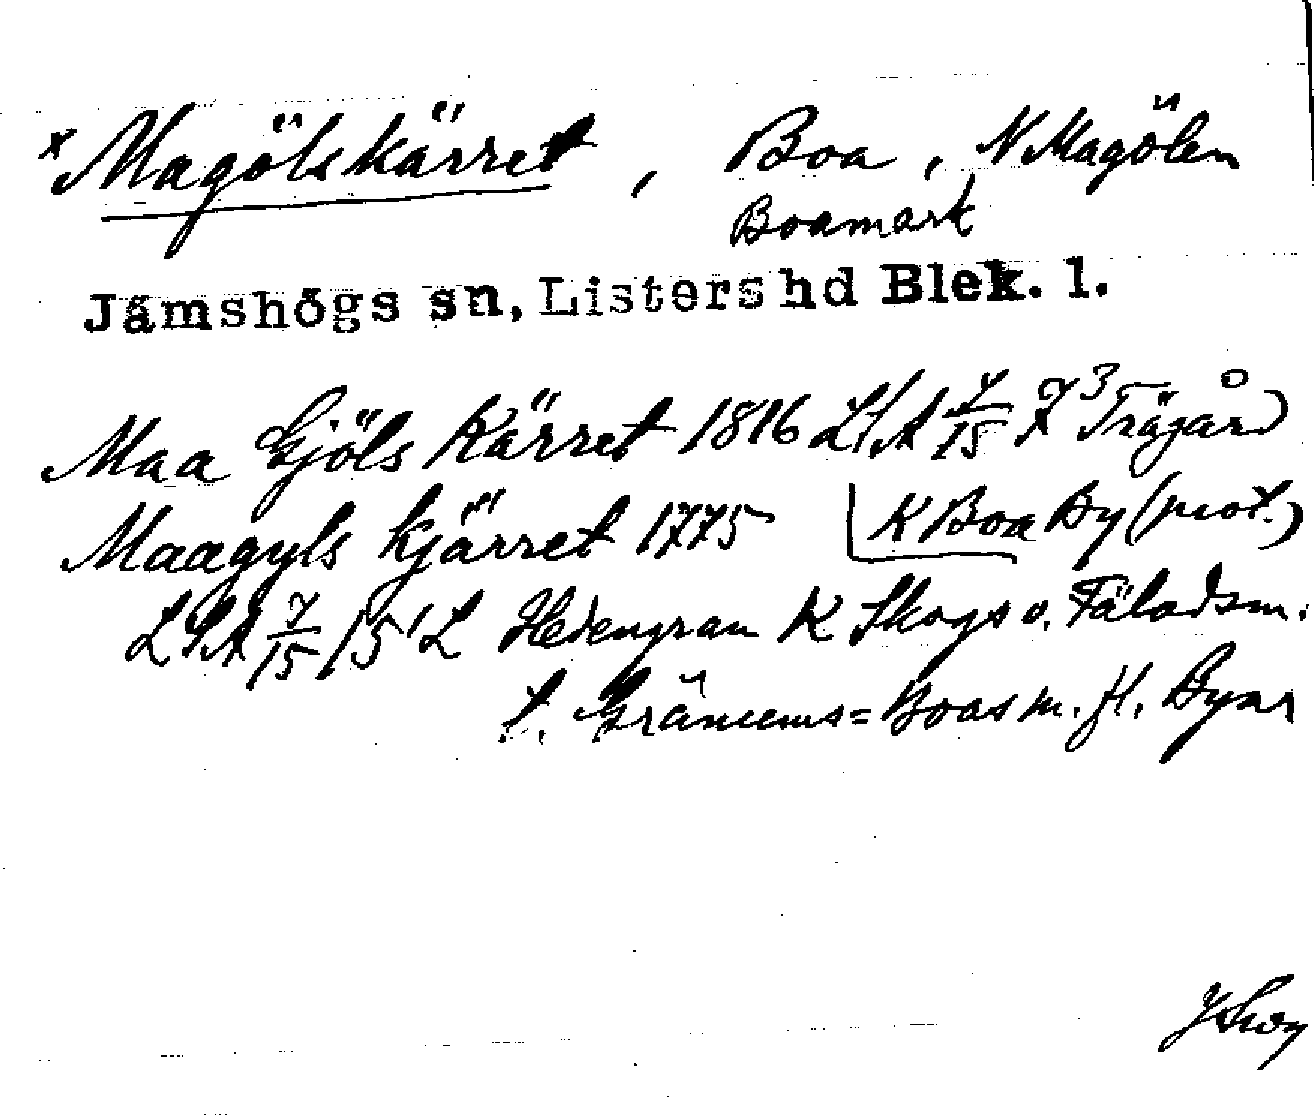 x Magölskärret, Boa, N Magölen
Boamark
Jämshögs sn, Listers hd Blek. l.
Maa Gjöls Kärret 1816 LSA 7/15 7³ Trägård
Maagyls kjärret 1775 K Boa By (prot.)
LSA 7/15 15¹ L Hedengran K Skogs o. Fäladsm.
t. Gränums= Boas m. fl. Byar